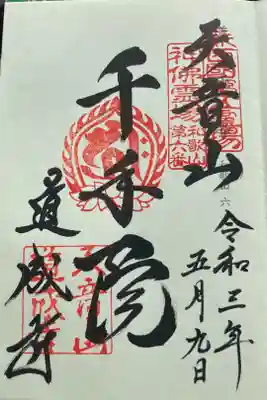 天音山
千手院
道成寺
令和三年
五月九日
神佛霊場
和歌山
第六番
天音山
道成寺